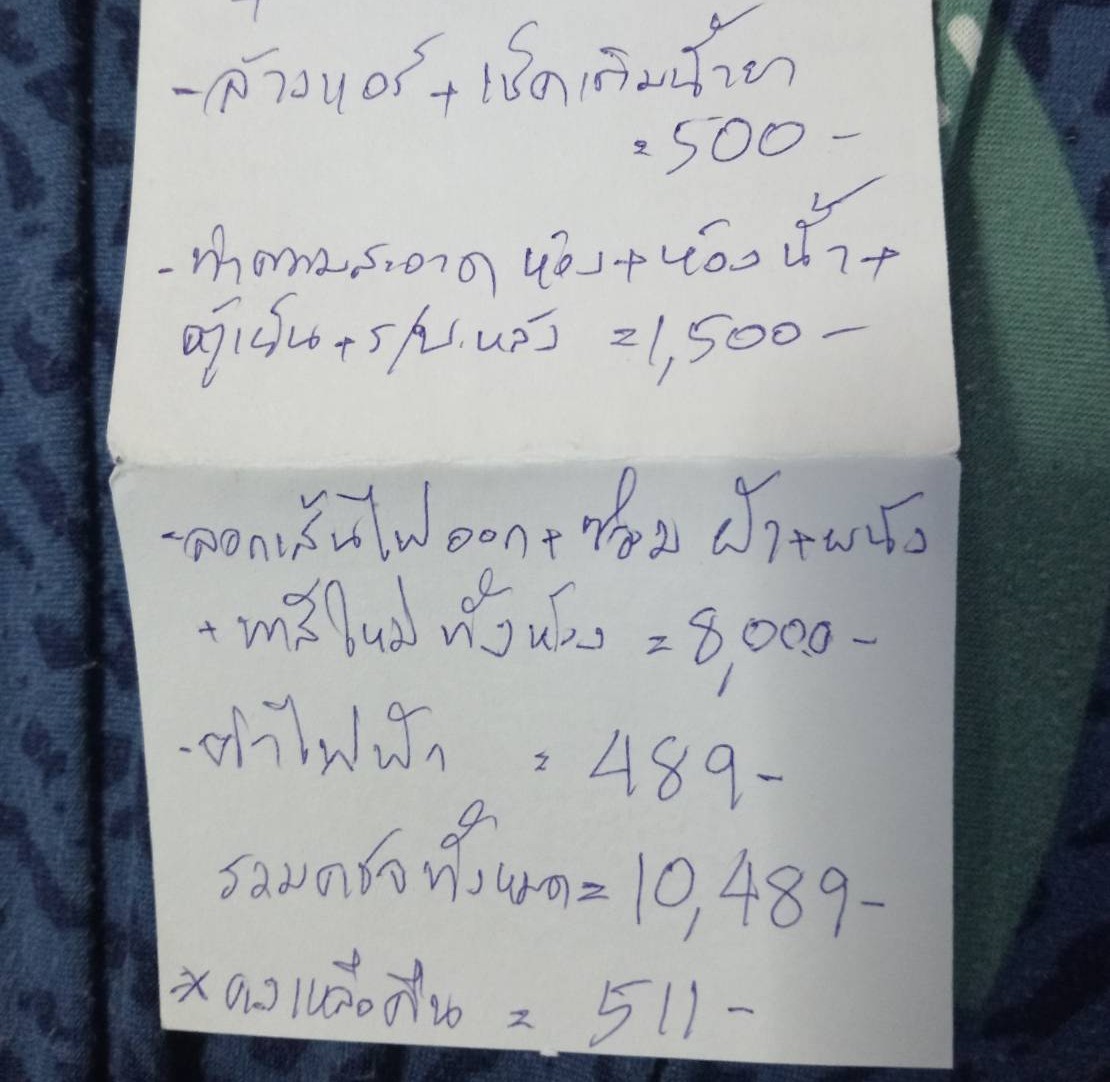 - ล้างแอร์ + เช็คเติมน้ำยา
= 500 -
- ทำความสะอาด ห้อง + ห้องน้ำ +
ตู้เย็น + ร/บ.หลัง = 1,500 -
- ลอกเส้นไฟออก + ซ่อม ฝ้า + ผนัง
+ ทาสีใหม่ ทั้งห้อง = 8,000 -
- ค่าไฟฟ้า = 489 -
รวมคชจทั้งหมด = 10,489 -
* คงเหลือคืน = 511 -